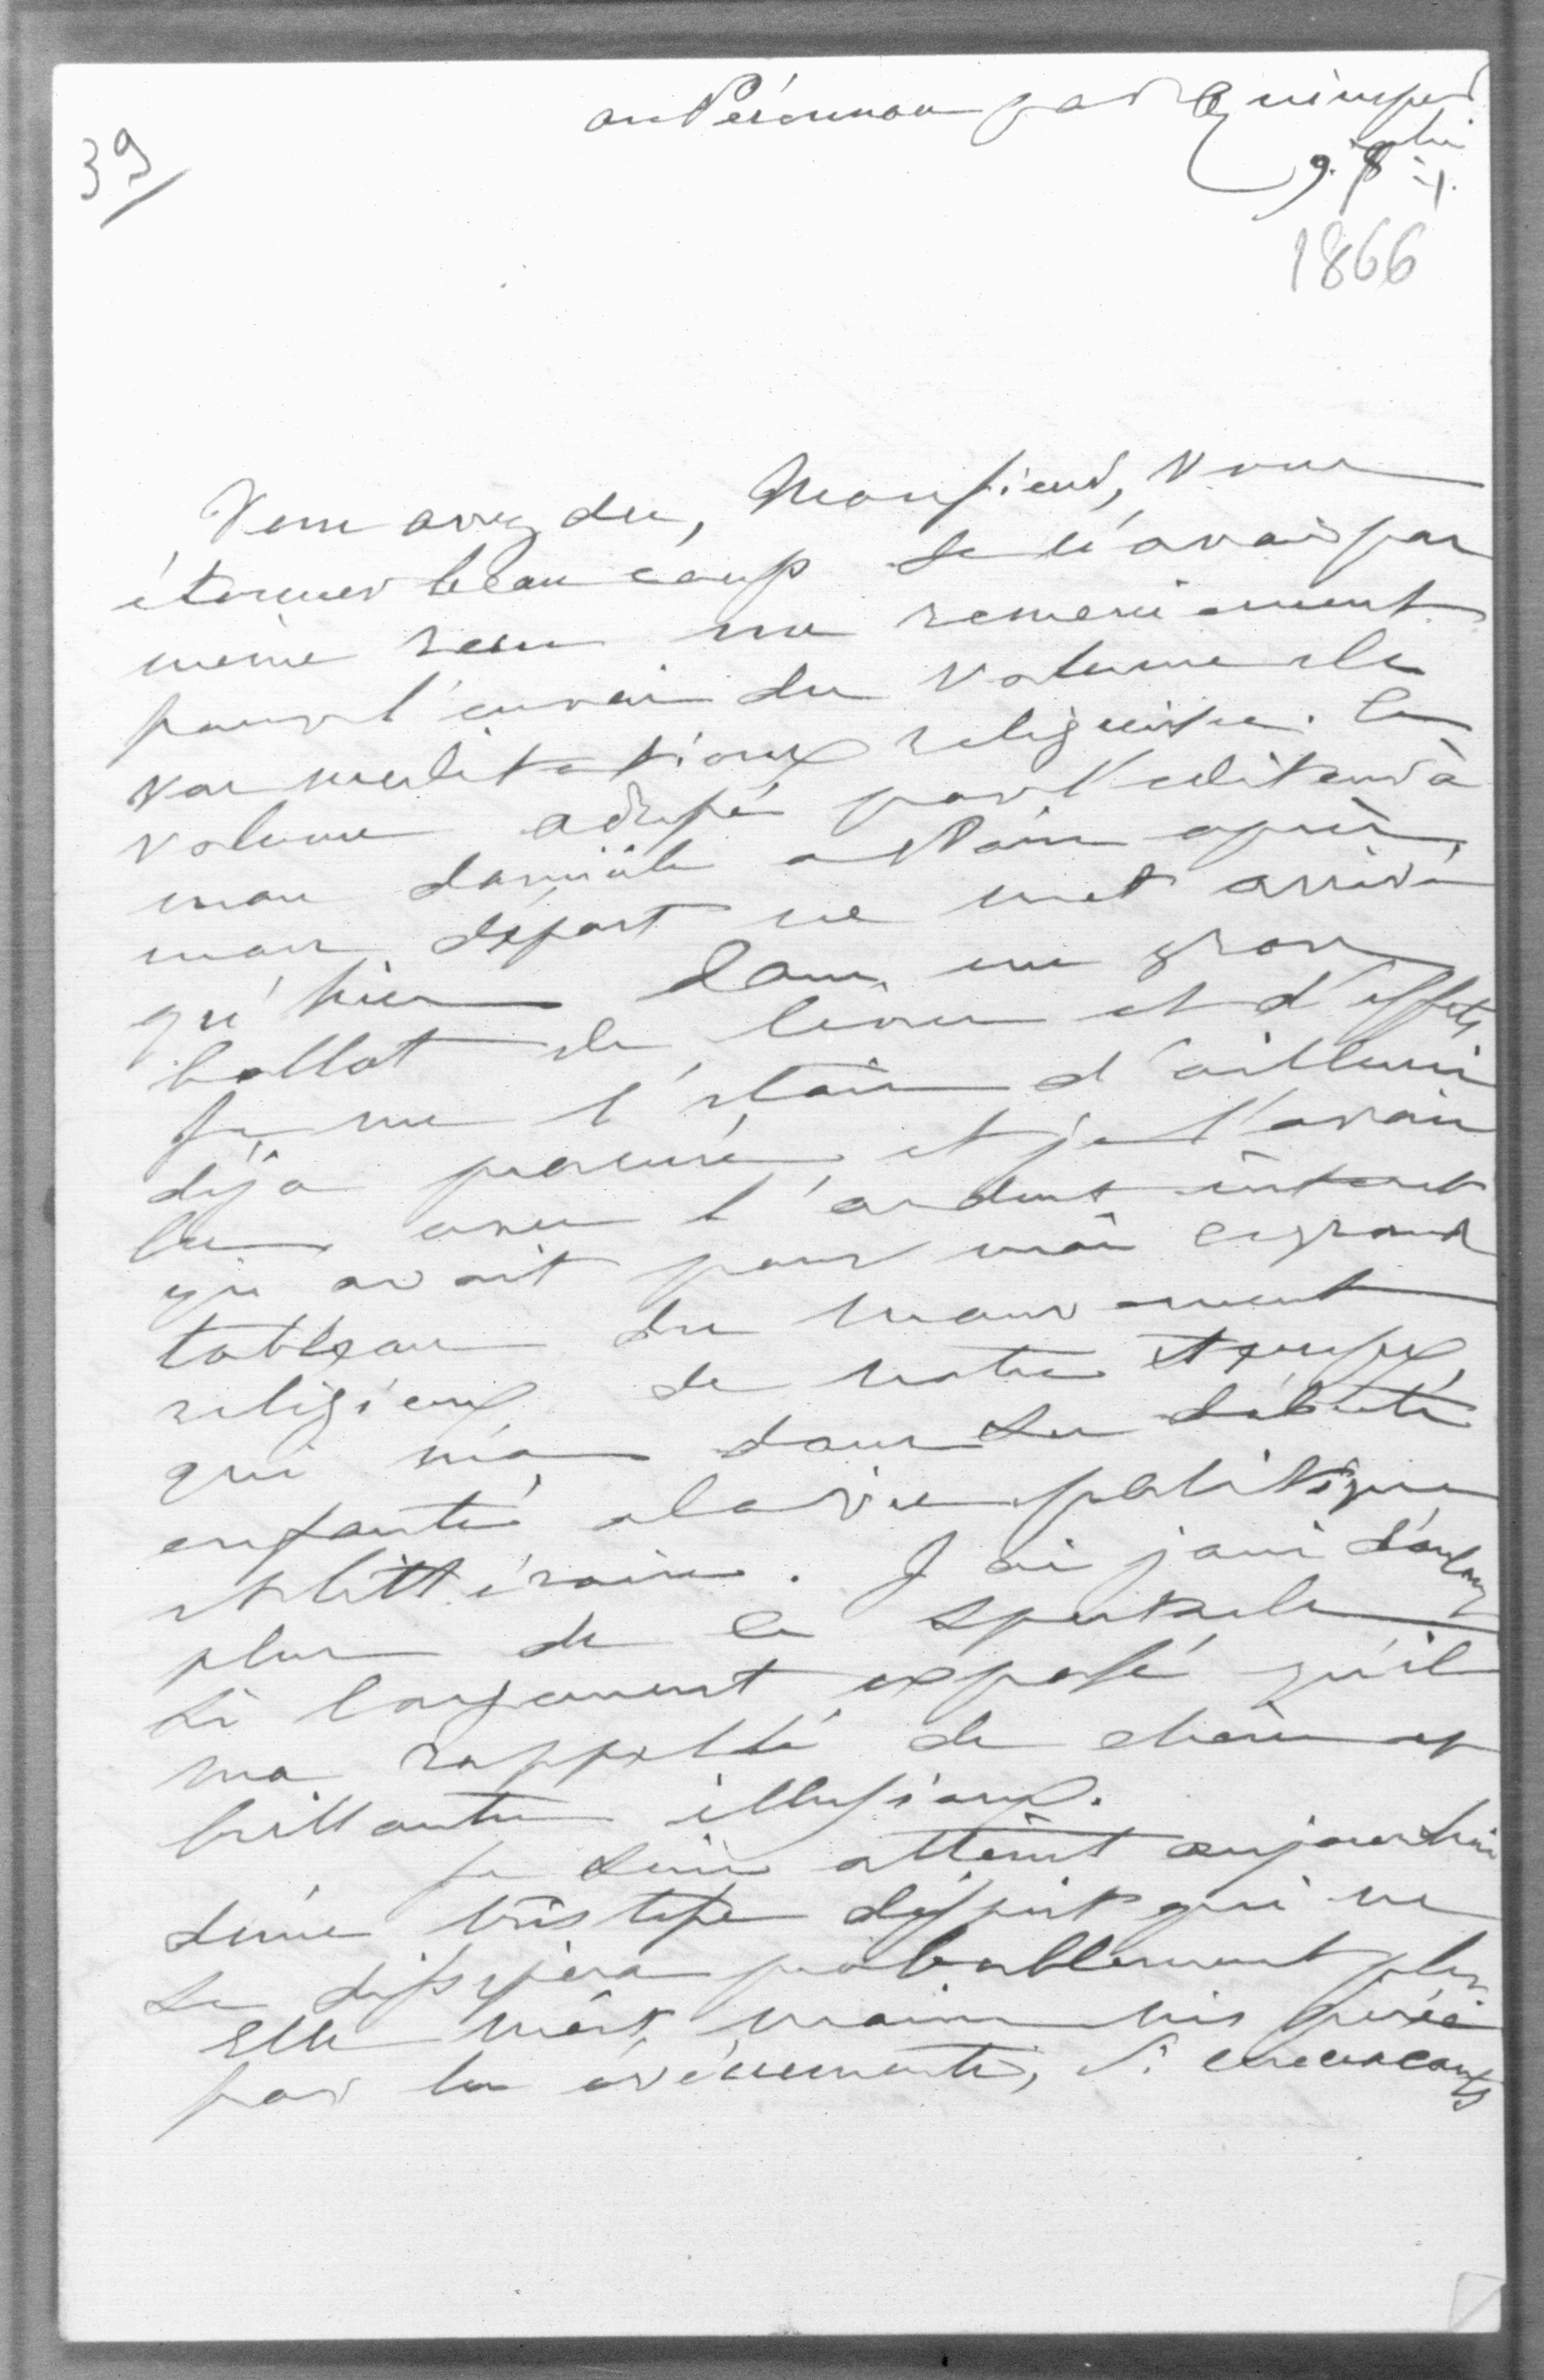 39
au Pérennou par Quimper
9. 8
1866
Vous avez du, Monsieur, vous
étonner beaucoup de n'avoir pas
même reçu un remerciement
pour l'envoi du volume de
vos meditations religieuses. Ce
volume adressé par l'editeur à
mon domicile a Paris après
mon départ ne m'est arrivé
qu'hier dans un gros
ballot de livres et d'effets
je me l'étais d'ailleurs
déja procuré et je l'avais
lu avec l'ardent intérêt
qu'avait pour moi ce grand
tableau du mouvement
religieux de notre temps,
qui m'a dans ses débuts
enfanté a la vie politique
et littéraire. J'ai joui d'autant
plus de ce spectacle
si largement exposé qu'il
m'a rappellé de chères et
brillantes illusions.
Je suis atteint aujourdhui
d'une tristesse
se dissipera probablement plus
elle m'est moins inspirée
par les événements, si menaçants